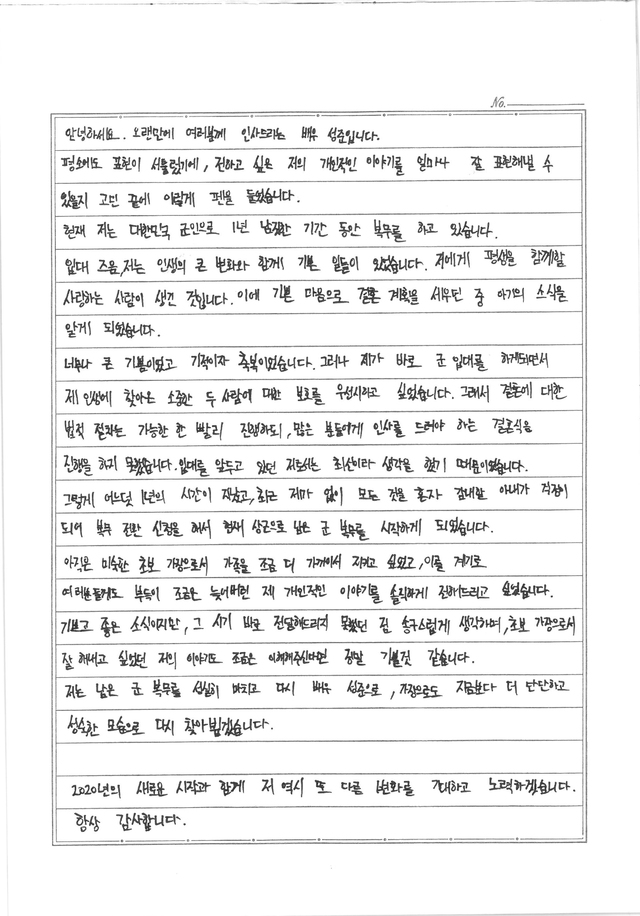 No.
안녕하세요. 오랜만에 여러분께 인사드리는 배우 성준입니다.
평소에도 표현이 서툴렀기에, 전하고 싶은 저의 개인적인 이야기를 얼마나 잘 표현해낼 수
있을지 고민 끝에 이렇게 펜을 들었습니다.
현재 저는 대한민국 군인으로 1년 남짓한 기간 동안 복무를 하고 있습니다.
입대 즈음, 저는 인생의 큰 변화와 함께 기쁜 일들이 있었습니다. 저에게 평생을 함께할
사랑하는 사람이 생긴 것입니다. 이에 기쁜 마음으로 결혼 계획을 세우던 중 아기의 소식을
알게 되었습니다.
너무나 큰 기쁨이었고 기적이자 축복이었습니다. 그러나 제가 바로 군 입대를 하게되면서
제 인생에 찾아온 소중한 두 사람에 대한 보호를 우선시하고 싶었습니다. 그래서 결혼에 대한
법적 절차는 가능한 한 빨리 진행하되, 많은 분들에게 인사를 드려야 하는 결혼식을
진행을 하지 못했습니다. 입대를 앞두고 있던 지로서는 최선이라 생각을 했기 때문이었습니다.
그렇게 어느덧 1년의 시간이 지났고, 최근 저마 없이 모든 것을 혼자 감내할 아내가 걱정이
되어 복무 전환 신청을 해서 현재 상근으로 남은 군 복무를 시작하게 되었습니다.
아직은 미숙한 초보 가장으로서 가족을 조금 더 가까이서 지키고 싶었고, 이를 계기로
여러분들께도 부득이 조금은 늦어버린 제 개인적인 이야기를 솔직하게 전해드리고 싶었습니다.
기쁘고 좋은 소식이지만, 그 시기 바로 전달해드리지 못했던 점 송구스럽게 생각하며, 초보 가장으로서
잘 해내고 싶었던 저의 이야기도 조금은 이해해주신다면 정말 기쁠것 같습니다.
저는 남은 군 복무를 성실히 마치고 다시 배우 성준으로, 가장으로도 지금보다 더 단단하고
성숙한 모습으로 다시 찾아뵙겠습니다.
2020년의 새로운 시작과 함께 저 역시 또 다른 변화를 기대하고 노력하겠습니다.
항상 감사합니다.